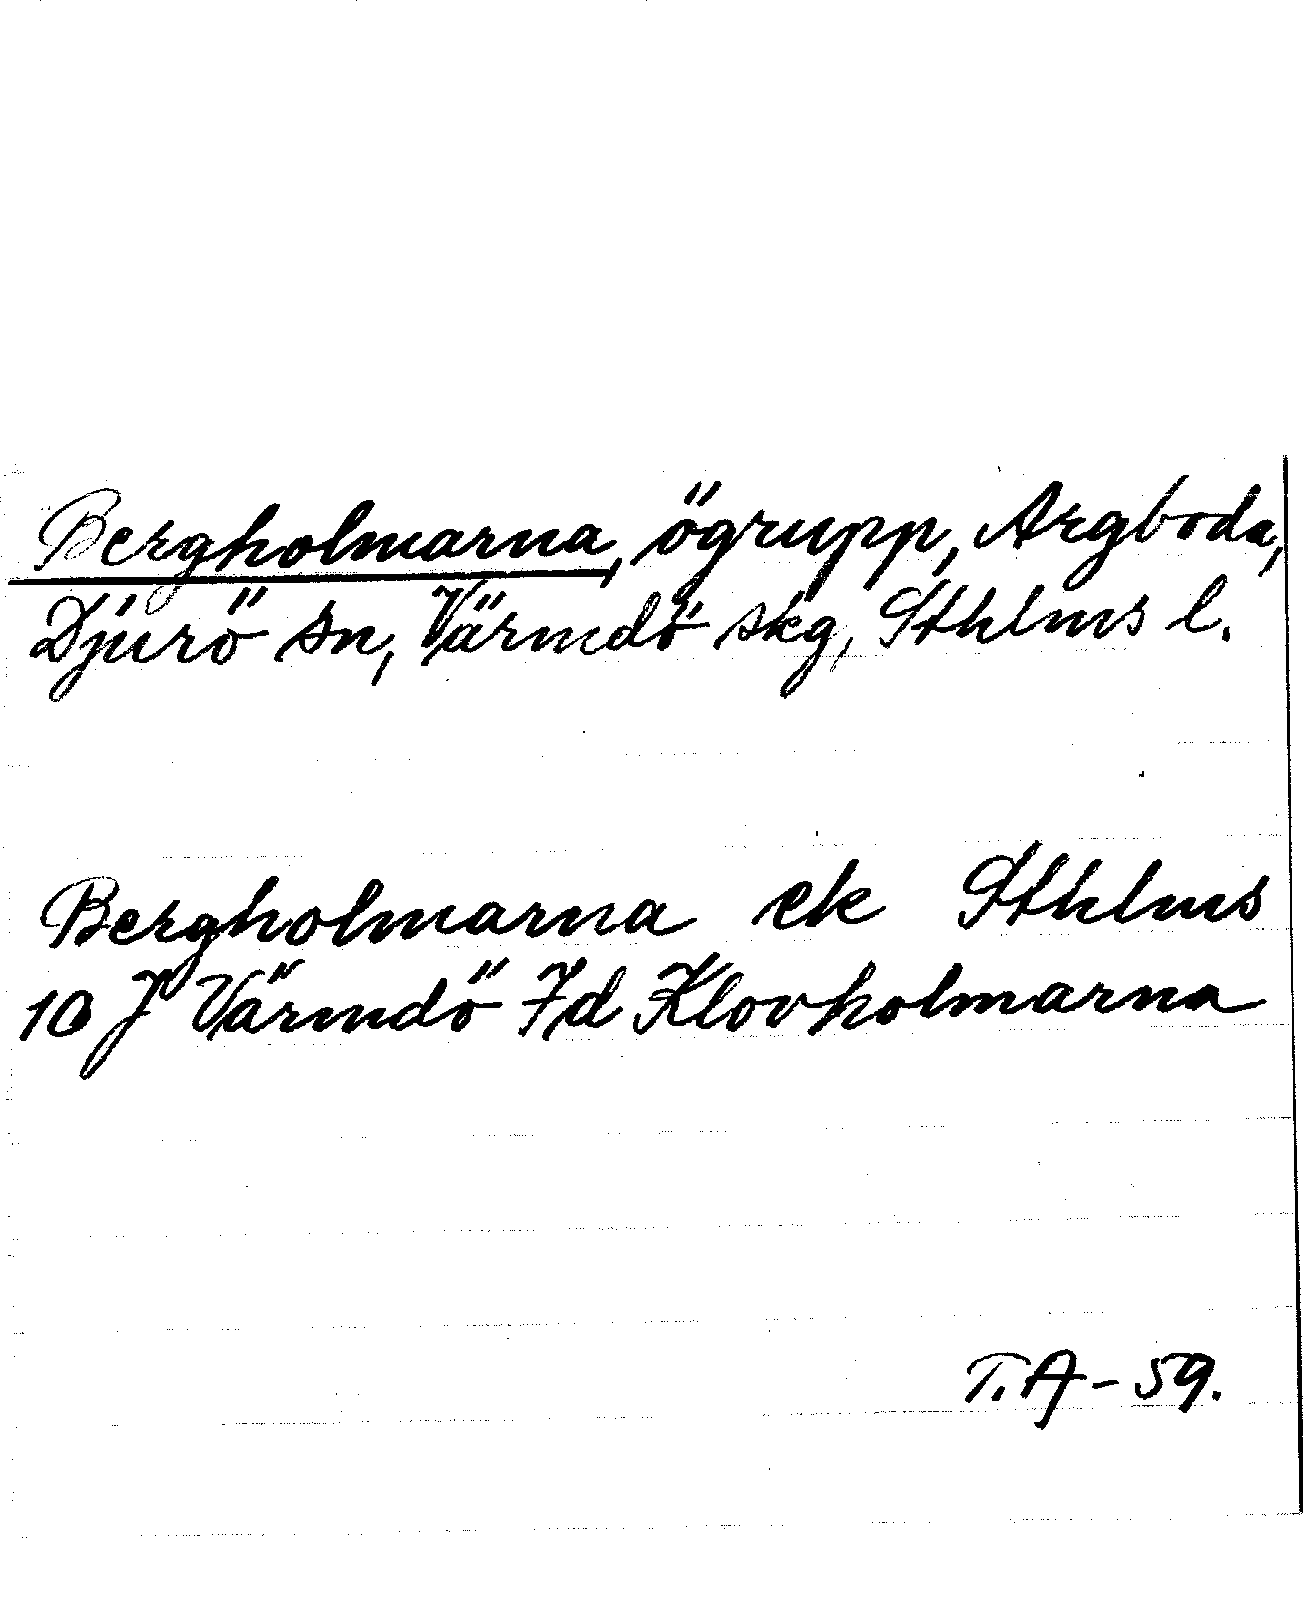 Bergholmarna, ögrupp, Argboda,
Djurö sn, Värmdö skg, Sthlms l.
Bergholmarna ek Sthlms
10 J Värmdö 7d Klovholmarna
T.A - 59.